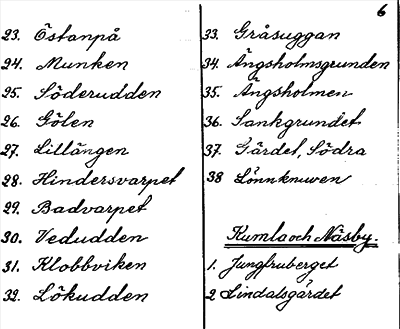 6
23. Östanpå
24. Munken
25. Söderudden
26. Gölen
27. Lillängen
28. Hindersvarpet
29. Badvarpet
30. Vedudden
31. Klobbviken
32. Lökudden
33. Gråsuggan
34. Ängsholmsgrunden
35. Ängsholmen
36. Sankgrundet
37. Gärdet, Södra
38 Lönnknuven
Kumla och Näsby.
1. Jungfruberget
2 Lindalsgärdet